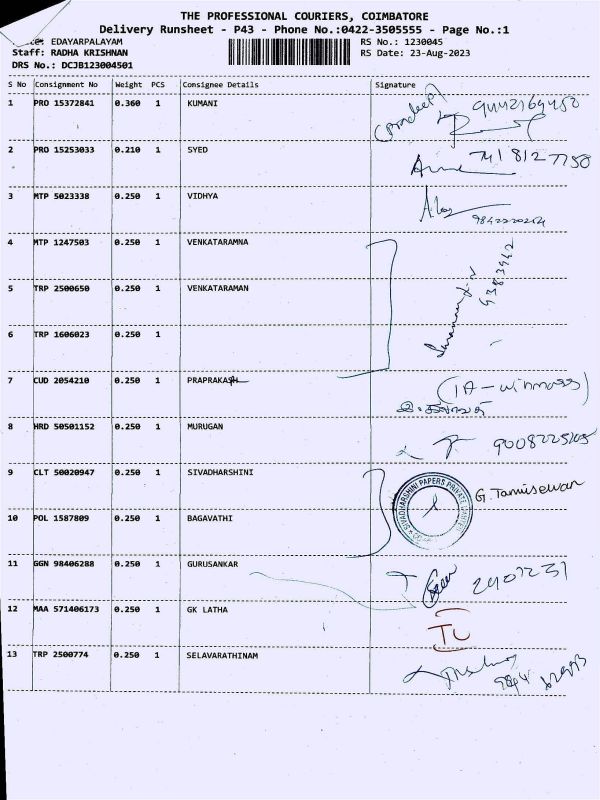 THE PROFESSIONAL COURIERS, COIMBATORE
Delivery Runsheet - P43 - Phone No.:0422-3505555 - Page No.:1
EDAYARPALAYAM
RS No.: 1230045
Staff: RADHA KRISHNAN
RS Date: 23-Aug-2023
DRS No.: DCJB123004501
S No Consignment No Weight PCS Consignee Details Signature
1 PRO 15372841 0.360 1 KUMANI (Pradeep)
2 PRO 15253033 0.210 1 SYED
3 MTP 5023338 0.250 1 VIDHYA
4 MTP 1247503 0.250 1 VENKATARAMNA
5 TRP 2500650 0.250 1 VENKATARAMAN
6 TRP 1606023 0.250 1
7 CUD 2054210 0.250 1 PRAPRAKASH
8 HRD 50501152 0.250 1 MURUGAN
9 CLT 50020947 0.250 1 SIVADHARSHINI
SIVADHARSHINI PAPERS PRIVATE LIMITED
10 POL 1587809 0.250 1 BAGAVATHI
11 GGN 98406288 0.250 1 GURUSANKAR
12 MAA 571406173 0.250 1 GK LATHA
13 TRP 2500774 0.250 1 SELAVARATHINAM